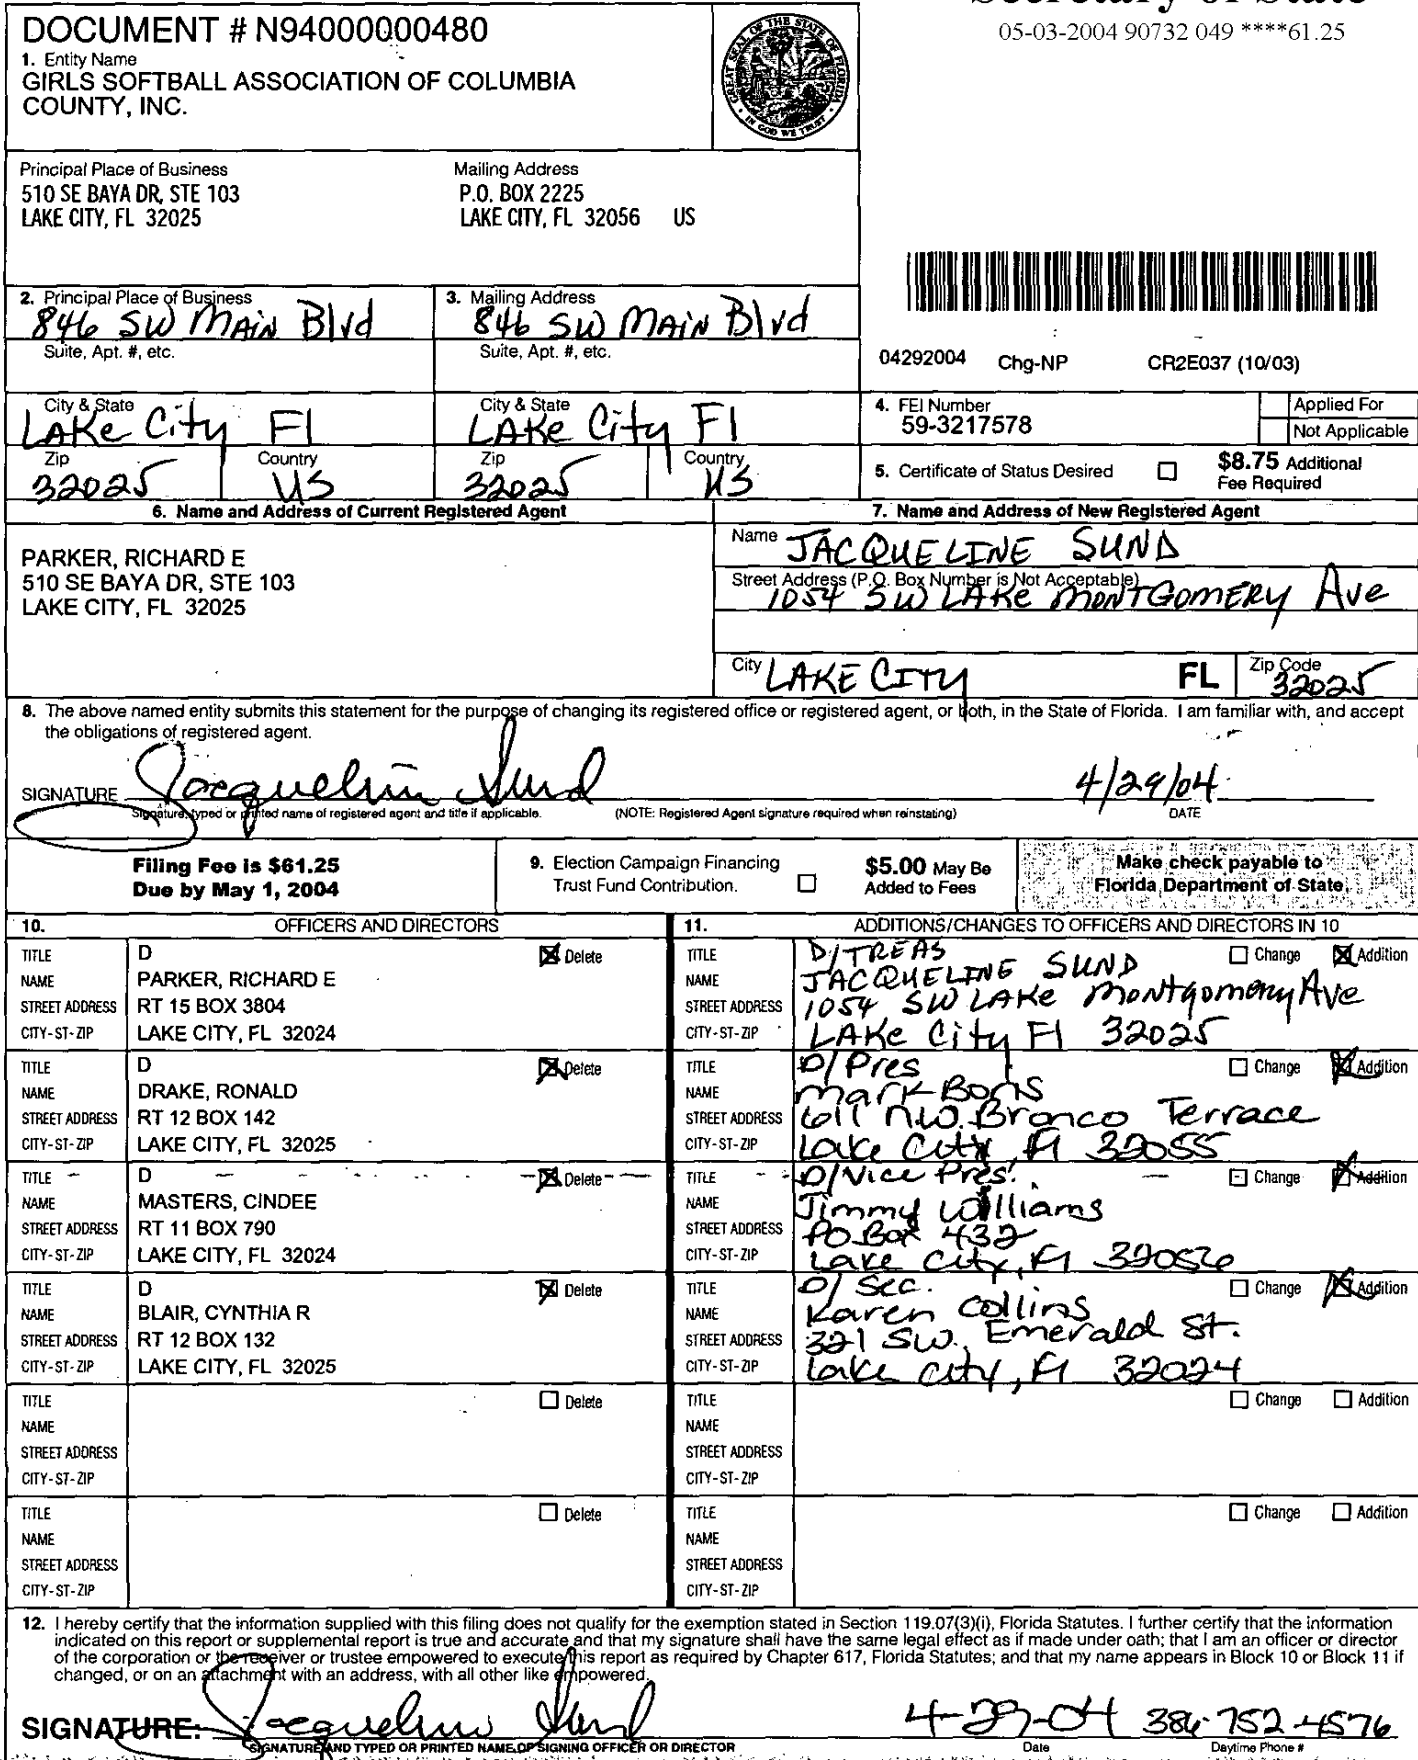 05-03-2004 90732 049 ****61.25
DOCUMENT # N94000000480
1. Entity Name
GIRLS SOFTBALL ASSOCIATION OF COLUMBIA
COUNTY, INC.
GREAT SEAL OF THE STATE OF FLORIDA
IN GOD WE TRUST
Principal Place of Business
510 SE BAYA DR, STE 103
LAKE CITY, FL 32025
Mailing Address
P.O. BOX 2225
LAKE CITY, FL 32056 US
2. Principal Place of Business
846 SW MAIN Blvd
Suite, Apt. #, etc.
3. Mailing Address
846 SW MAIN Blvd
Suite, Apt. #, etc.
04292004 Chg-NP CR2E037 (10/03)
City & State
LAKe City Fl
City & State
LAKe City Fl
Zip
32025
Country
US
Zip
32025
Country
US
4. FEI Number
59-3217578
Applied For
Not Applicable
5. Certificate of Status Desired
$8.75 Additional
Fee Required
6. Name and Address of Current Registered Agent
PARKER, RICHARD E
510 SE BAYA DR, STE 103
LAKE CITY, FL 32025
7. Name and Address of New Registered Agent
Name JACQUELINE SUND
Street Address (P.O. Box Number is Not Acceptable)
1054 SW LAKe MONTGOMERY Ave
City LAKE CITY FL Zip Code 32025
8. The above named entity submits this statement for the purpose of changing its registered office or registered agent, or both, in the State of Florida. I am familiar with, and accept
the obligations of registered agent.
SIGNATURE Jacqueline Sund 4/29/04
Signature, typed or printed name of registered agent and title if applicable. (NOTE: Registered Agent signature required when reinstating) DATE
Filing Fee is $61.25
Due by May 1, 2004
9. Election Campaign Financing
Trust Fund Contribution.
$5.00 May Be
Added to Fees
Make check payable to
Florida Department of State
10. OFFICERS AND DIRECTORS
TITLE D Delete
NAME PARKER, RICHARD E
STREET ADDRESS RT 15 BOX 3804
CITY-ST-ZIP LAKE CITY, FL 32024
TITLE D Delete
NAME DRAKE, RONALD
STREET ADDRESS RT 12 BOX 142
CITY-ST-ZIP LAKE CITY, FL 32025
TITLE D Delete
NAME MASTERS, CINDEE
STREET ADDRESS RT 11 BOX 790
CITY-ST-ZIP LAKE CITY, FL 32024
TITLE D Delete
NAME BLAIR, CYNTHIA R
STREET ADDRESS RT 12 BOX 132
CITY-ST-ZIP LAKE CITY, FL 32025
TITLE Delete
NAME
STREET ADDRESS
CITY-ST-ZIP
TITLE Delete
NAME
STREET ADDRESS
CITY-ST-ZIP
11. ADDITIONS/CHANGES TO OFFICERS AND DIRECTORS IN 10
TITLE D/TREAS Change Addition
NAME JACQUELINE SUND
STREET ADDRESS 1054 SW LAKe Montgomery Ave
CITY-ST-ZIP LAKe City Fl 32025
TITLE D/Pres Change Addition
NAME Mark Boris
STREET ADDRESS 611 N.W. Bronco Terrace
CITY-ST-ZIP Lake City, Fl 32055
TITLE D/Vice Pres. Change Addition
NAME Jimmy Williams
STREET ADDRESS PO Box 432
CITY-ST-ZIP Lake City, Fl 32056
TITLE D/Sec. Change Addition
NAME Karen Collins
STREET ADDRESS 321 SW. Emerald St.
CITY-ST-ZIP Lake City, Fl 32024
TITLE Change Addition
NAME
STREET ADDRESS
CITY-ST-ZIP
TITLE Change Addition
NAME
STREET ADDRESS
CITY-ST-ZIP
12. I hereby certify that the information supplied with this filing does not qualify for the exemption stated in Section 119.07(3)(i), Florida Statutes. I further certify that the information
indicated on this report or supplemental report is true and accurate and that my signature shall have the same legal effect as if made under oath; that I am an officer or director
of the corporation or the receiver or trustee empowered to execute this report as required by Chapter 617, Florida Statutes; and that my name appears in Block 10 or Block 11 if
changed, or on an attachment with an address, with all other like empowered.
SIGNATURE: Jacqueline Sund 4-29-04 386-752-4576
SIGNATURE AND TYPED OR PRINTED NAME OF SIGNING OFFICER OR DIRECTOR Date Daytime Phone #